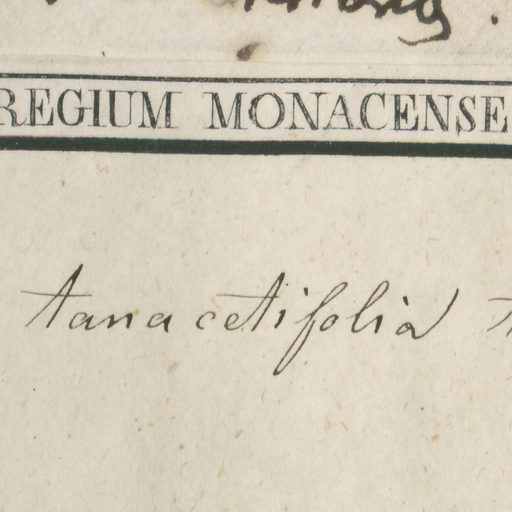 REGIUM MONACENSE
tanacetifolia